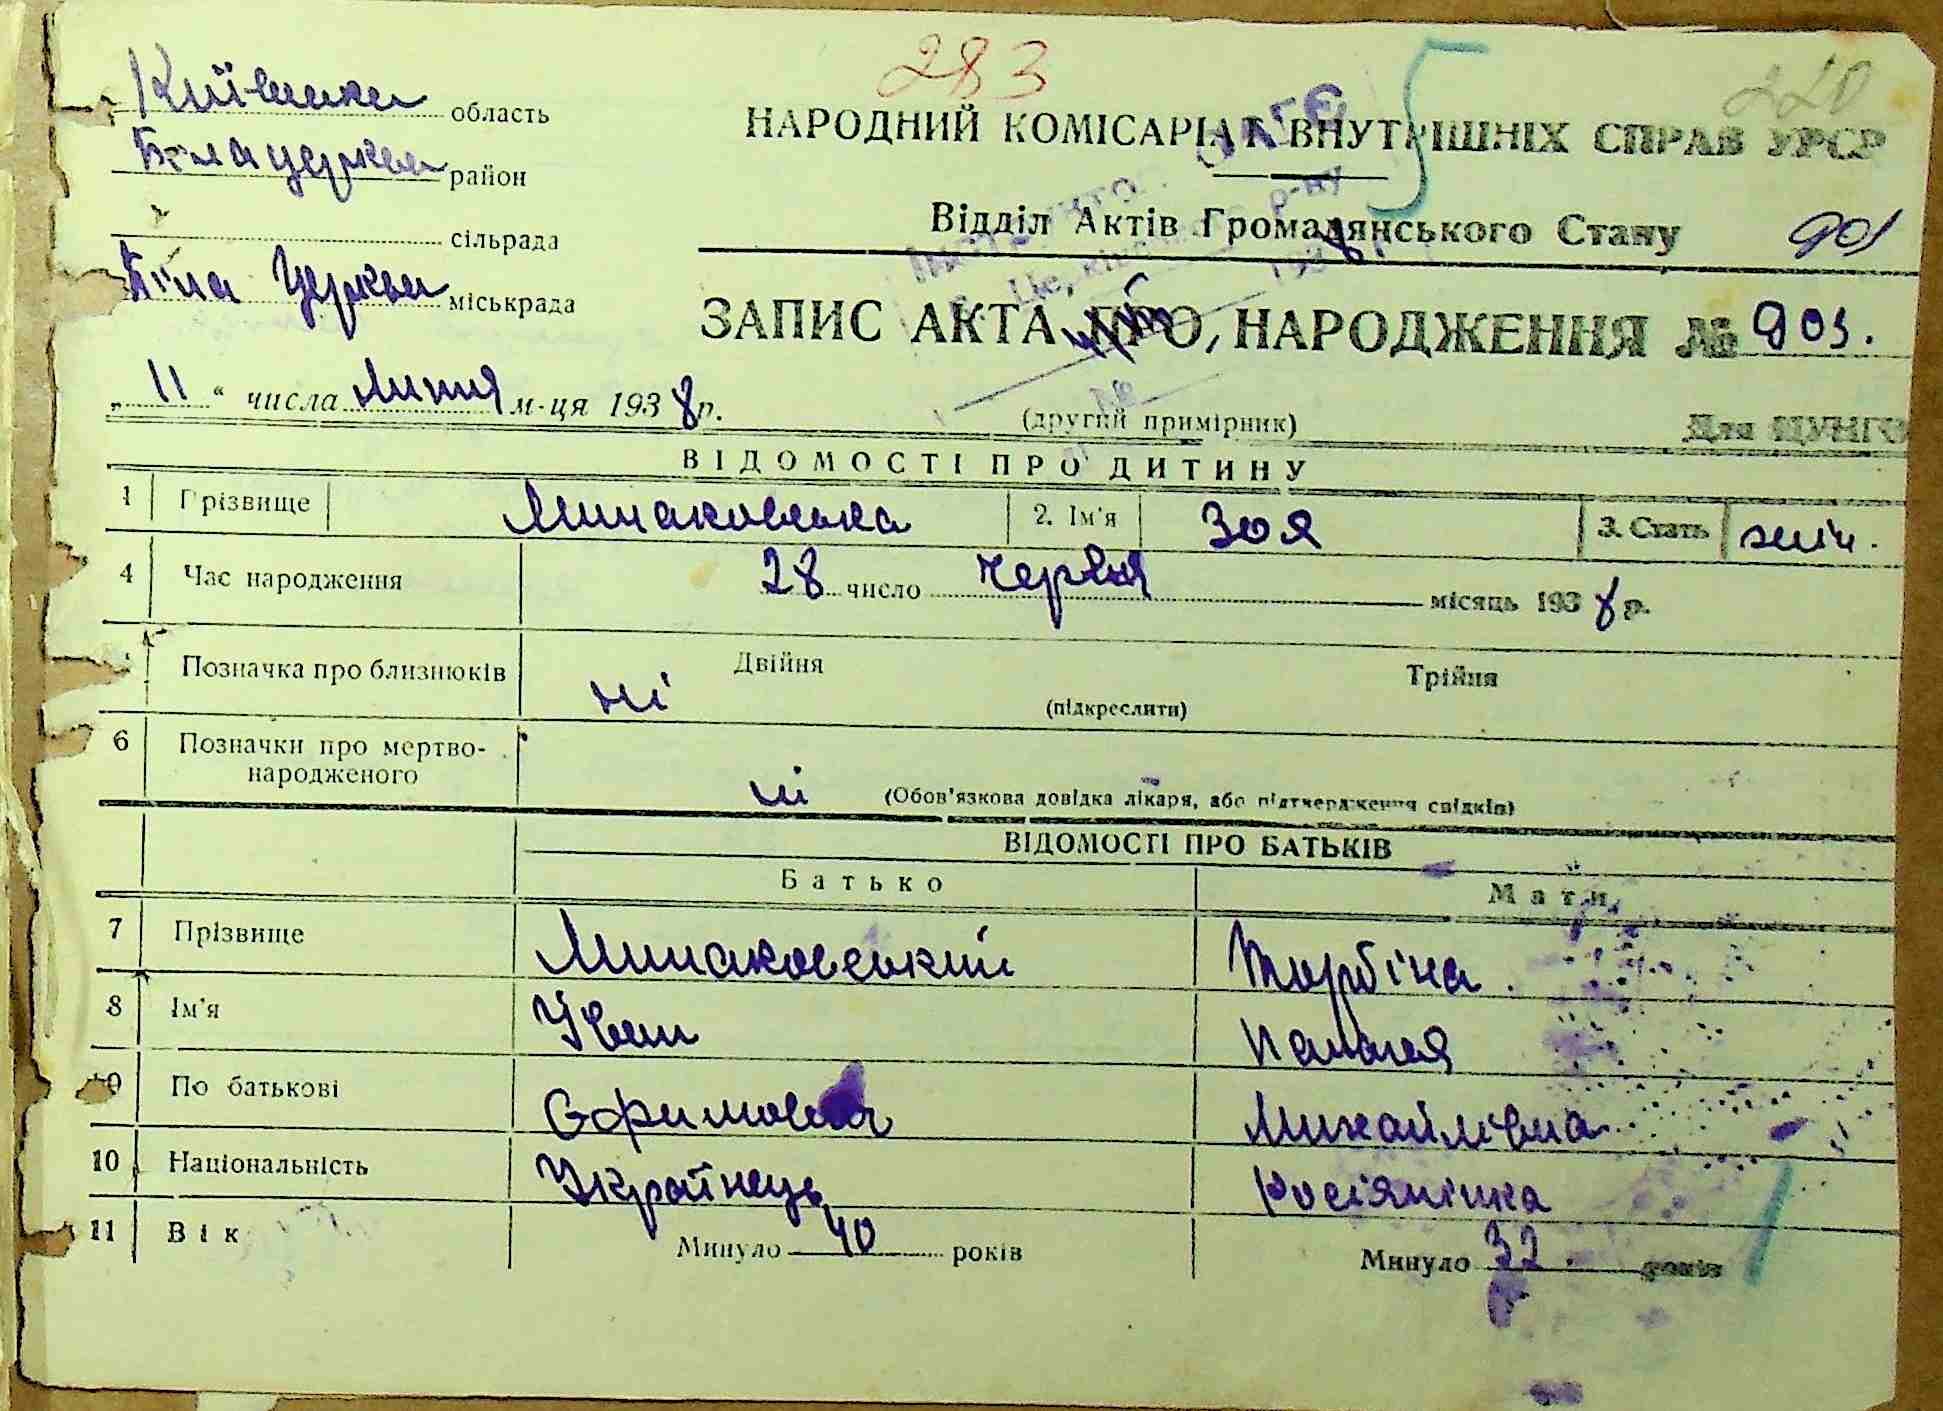 283
220
Київська область
НАРОДНИЙ КОМІСАРІАТ ВНУТРІШНІХ СПРАВ УРСР
Біла церква район
Відділ Актів Громадянського Стану 901
сільрада
Біла Церква міськрада
ЗАПИС АКТА ПРО НАРОДЖЕННЯ № 903.
„ 11 “ числа липня м-ця 1938 р.
(другий примірник) Для ЦУНГО
ВІДОМОСТІ ПРО ДИТИНУ
1 Прізвище Минаковська 2. Ім'я Зоя 3. Стать жін.
4 Час народження 28 число червня місяць 1938 р.
Позначка про близнюків ні Двійня Трійня
(підкреслити)
6 Позначки про мертво-
народженого ні (Обов'язкова довідка лікаря, або підтвердження свідків)
ВІДОМОСТІ ПРО БАТЬКІВ
Батько Мати
7 Прізвище Минаковський Торбіна
8 Ім'я Иван
9 По батькові Михайлівна
10 Національність Українець Росіянінка
11 Вік Минуло 40 років Минуло 32. років